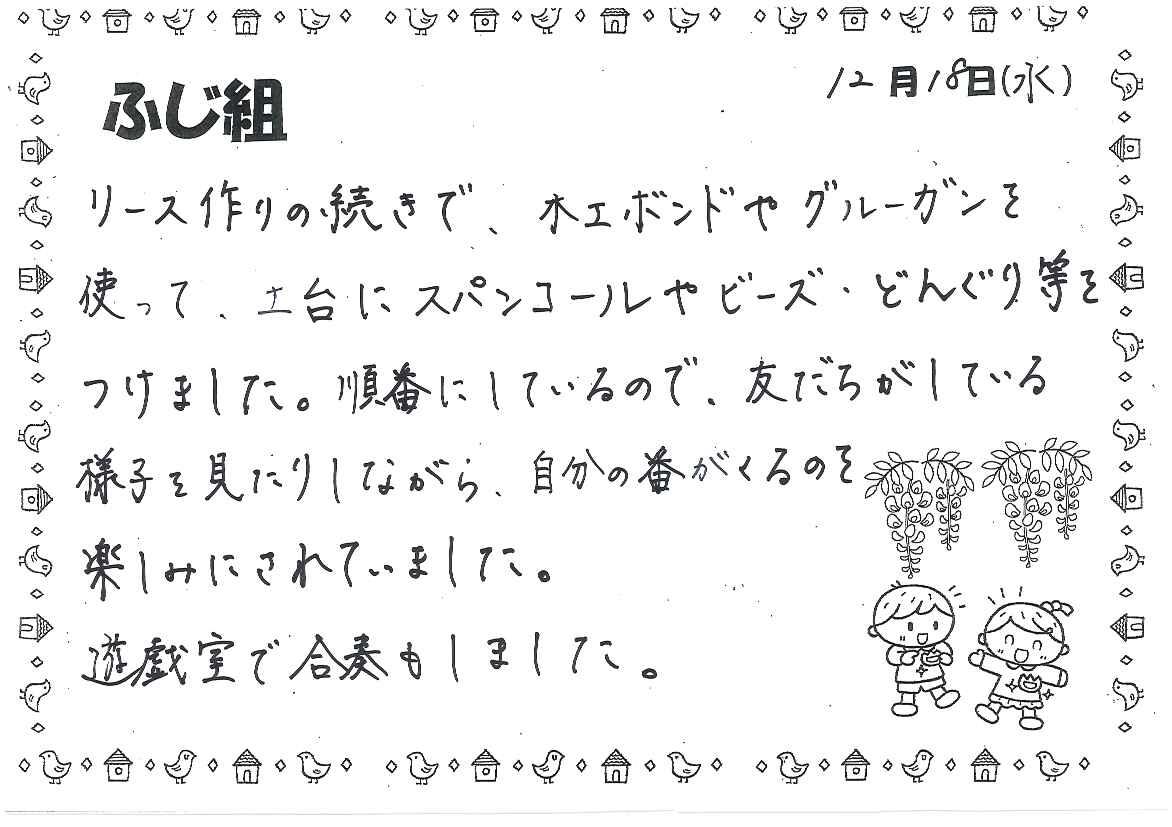 ふじ組
12月18日(水)
リース作りの続きで、木工ボンドやグルーガンを
使って、土台にスパンコールやビーズ・どんぐり等を
つけました。順番にしているので、友だちがしている
様子を見たりしながら、自分の番がくるのを
楽しみにされていました。
遊戯室で合奏もしました。